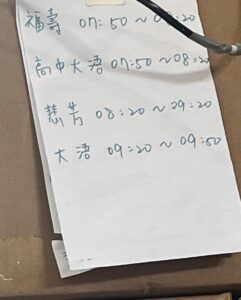 福壽 07:50～0 :20
高中大語 07:50～08:20
慧芳 08:20～09:20
大語 09:20～09:50